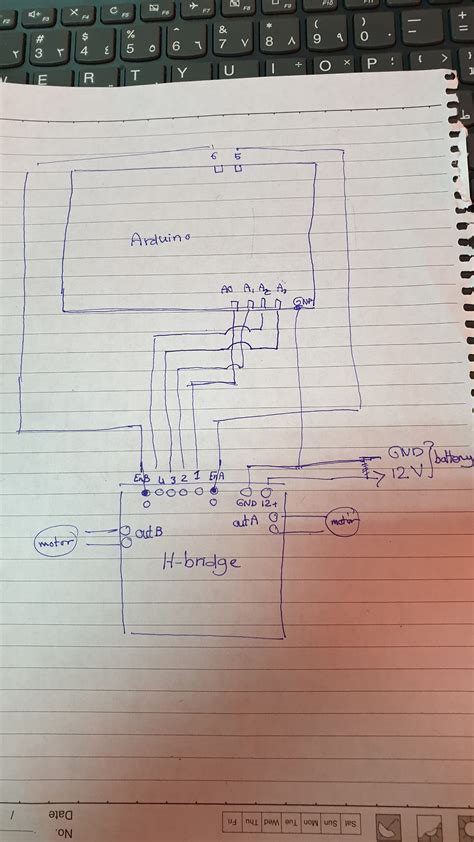 F5 F6 F7 F8 F9
# $ % ^ & * ( )
3 ٣ 4 ٤ 5 ٥ 6 ٦ 7 ٧ 8 ٨ 9 ٩ 0
E R T Y U I O P
6 5
Arduino
A0 A1 A2 A3 GND
GND
12V
battery
EnB 4 3 2 1 EnA
GND 12+
out A
motor
motor
out B
H-bridge
Sat Sun Mon Tue Wed Thu Fri
Date /
No.